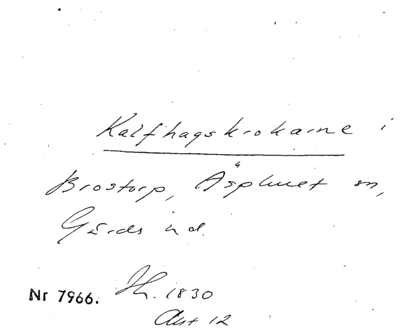 Kalfhagskrokarne i
Brostorp, Äsphult sn,
Gärds hd.
Nr 7966. Jh. 1830
Akt 12